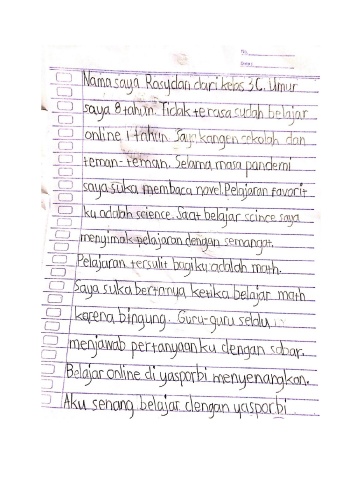 No.
Date:
Nama saya Rasydan dari kelas 3C. Umur
saya 8 tahun. Tidak terasa sudah belajar
online 1 tahun. Saya kangen sekolah dan
teman-teman. Selama masa pandemi
saya suka membaca novel. Pelajaran favorit
ku adalah science. Saat belajar scince saya
menyimak pelajaran dengan semangat.
Pelajaran tersulit bagiku adalah math.
Saya suka bertanya ketika belajar math
karena bingung. Guru-guru selalu
menjawab pertanyaanku dengan sabar.
Belajar online di yasporbi menyenangkan.
Aku senang belajar dengan yasporbi